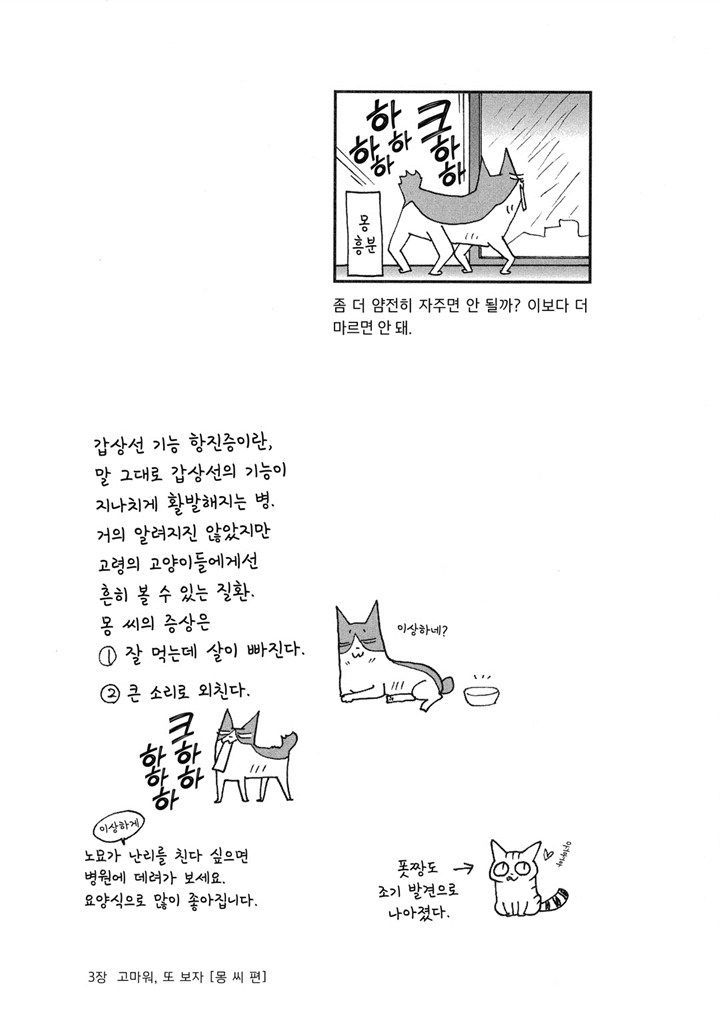 크하하
하하하하
몽
흥분
좀 더 얌전히 자주면 안 될까? 이보다 더
마르면 안 돼.
갑상선 기능 항진증이란,
말 그대로 갑상선의 기능이
지나치게 활발해지는 병.
거의 알려지진 않았지만
고령의 고양이들에게선
흔히 볼 수 있는 질환.
몽 씨의 증상은
① 잘 먹는데 살이 빠진다.
이상하네?
② 큰 소리로 외친다.
크하하
하하하
이상하게
노묘가 난리를 친다 싶으면
병원에 데려가 보세요.
요양식으로 많이 좋아집니다.
폿짱도 →
조기 발견으로
나아졌다.
3장 고마워, 또 보자 [몽 씨 편]